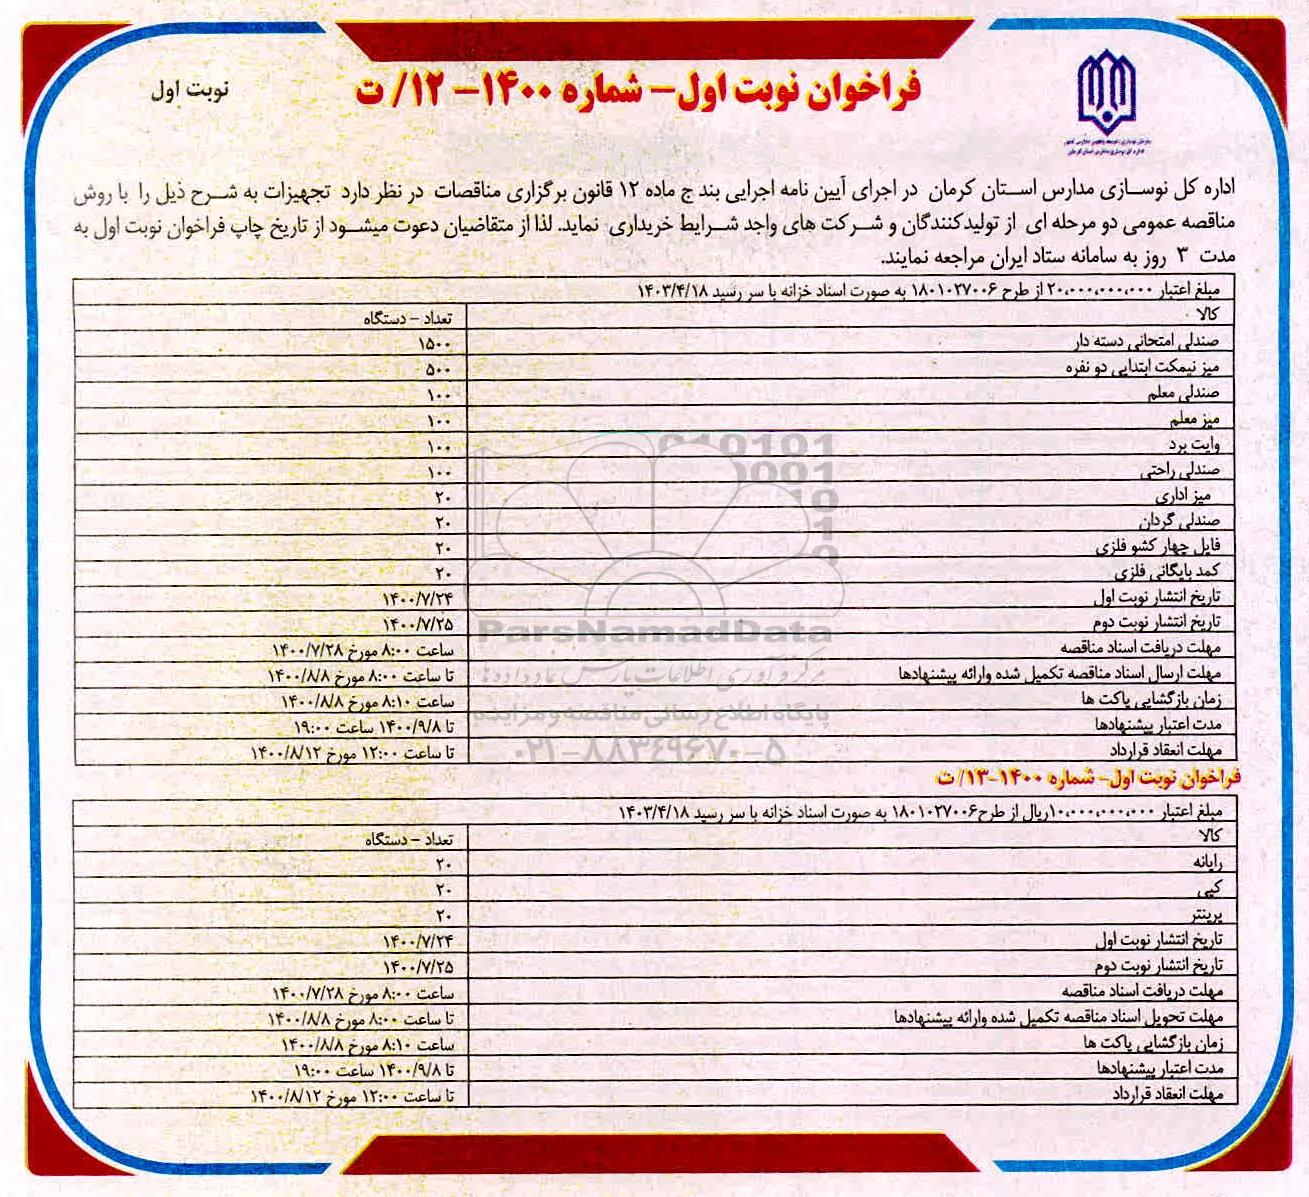 فراخوان نوبت اول– شماره ۱۴۰۰– ۱۲/ ت
نوبت اول
سازمان نوسازی، توسعه و تجهیز مدارس کشور
اداره کل نوسازی مدارس استان کرمان
اداره کل نوسازی مدارس استان کرمان در اجرای آیین نامه اجرایی بند ج ماده ۱۲ قانون برگزاری مناقصات در نظر دارد تجهیزات به شرح ذیل را با روش
مناقصه عمومی دو مرحله ای از تولیدکنندگان و شرکت های واجد شرایط خریداری نماید. لذا از متقاضیان دعوت میشود از تاریخ چاپ فراخوان نوبت اول به
مدت ۳ روز به سامانه ستاد ایران مراجعه نمایند.
مبلغ اعتبار ۲۰،۰۰۰،۰۰۰،۰۰۰ از طرح ۱۸۰۱۰۲۷۰۰۶ به صورت اسناد خزانه با سر رسید ۱۴۰۳/۴/۱۸
کالا تعداد – دستگاه
صندلی امتحانی دسته دار ۱۵۰۰
میز نیمکت ابتدایی دو نفره ۵۰۰
صندلی معلم ۱۰۰
میز معلم ۱۰۰
وایت برد ۱۰۰
صندلی راحتی ۱۰۰
میز اداری ۲۰
صندلی گردان ۲۰
فایل چهار کشو فلزی ۲۰
کمد بایگانی فلزی ۲۰
تاریخ انتشار نوبت اول ۱۴۰۰/۷/۲۴
تاریخ انتشار نوبت دوم ۱۴۰۰/۷/۲۵
مهلت دریافت اسناد مناقصه ساعت ۸:۰۰ مورخ ۱۴۰۰/۷/۲۸
مهلت ارسال اسناد مناقصه تکمیل شده وارائه پیشنهادها تا ساعت ۸:۰۰ مورخ ۱۴۰۰/۸/۸
زمان بازگشایی پاکت ها ساعت ۸:۱۰ مورخ ۱۴۰۰/۸/۸
مدت اعتبار پیشنهادها تا ۱۴۰۰/۹/۸ ساعت ۱۹:۰۰
مهلت انعقاد قرارداد تا ساعت ۱۲:۰۰ مورخ ۱۴۰۰/۸/۱۲
ParsNamadData
مرکز فرآوری اطلاعات پارس نماد داده ها
پایگاه اطلاع رسانی مناقصه و مزایده
۰۲۱–۸۸۳۴۹۶۷۰–۵
فراخوان نوبت اول– شماره ۱۴۰۰-۱۳/ ت
مبلغ اعتبار ۱۰،۰۰۰،۰۰۰،۰۰۰ریال از طرح۱۸۰۱۰۲۷۰۰۶ به صورت اسناد خزانه با سر رسید ۱۴۰۳/۴/۱۸
کالا تعداد – دستگاه
رایانه ۲۰
کپی ۲۰
پرینتر ۲۰
تاریخ انتشار نوبت اول ۱۴۰۰/۷/۲۴
تاریخ انتشار نوبت دوم ۱۴۰۰/۷/۲۵
مهلت دریافت اسناد مناقصه ساعت ۸:۰۰ مورخ ۱۴۰۰/۷/۲۸
مهلت تحویل اسناد مناقصه تکمیل شده وارائه پیشنهادها تا ساعت ۸:۰۰ مورخ ۱۴۰۰/۸/۸
زمان بازگشایی پاکت ها ساعت ۸:۱۰ مورخ ۱۴۰۰/۸/۸
مدت اعتبار پیشنهادها تا ۱۴۰۰/۹/۸ ساعت ۱۹:۰۰
مهلت انعقاد قرارداد تا ساعت ۱۲:۰۰ مورخ ۱۴۰۰/۸/۱۲